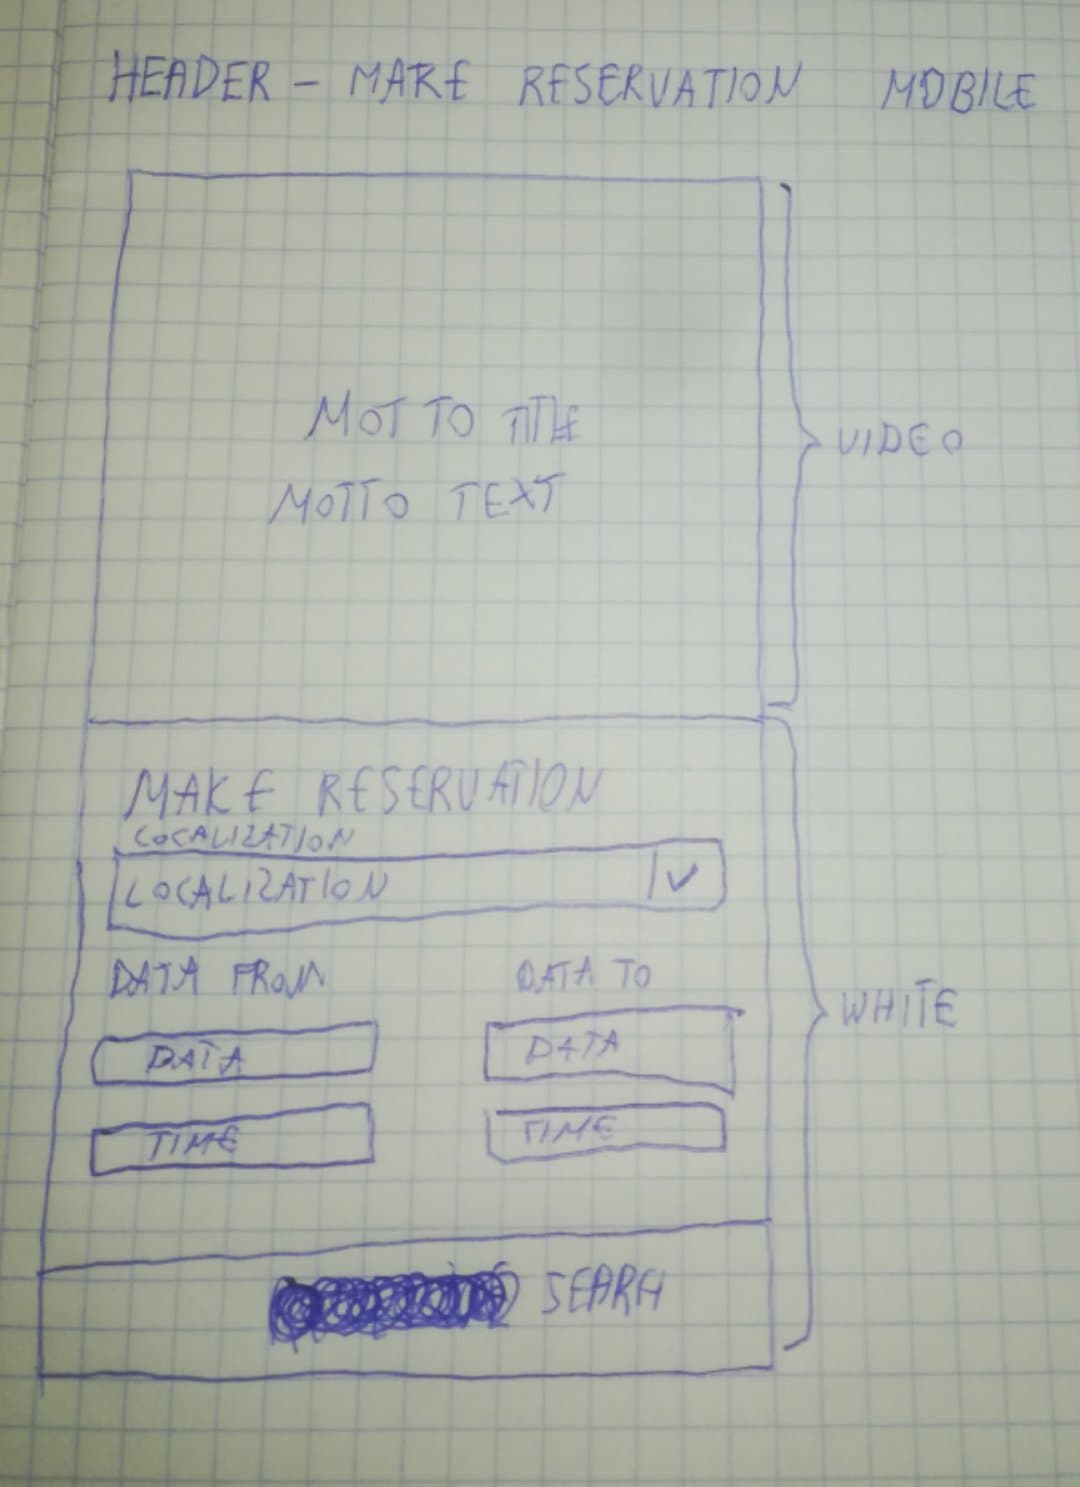 HEADER - MAKE RESERVATION MOBILE
MOTTO TITLE
MOTTO TEXT
VIDEO
MAKE RESERVATION
LOCALIZATION
LOCALIZATION
DATA FROM DATA TO
DATA DATA
WHITE
TIME TIME
SEARH